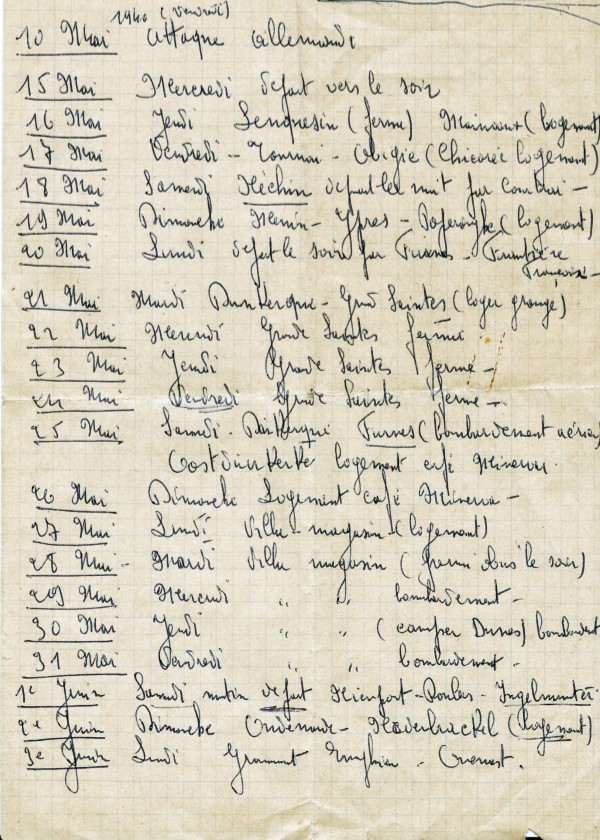 1940 (Vendredi)
10 Mai attaque allemande
15 Mai Mercredi depart vers le soir
16 Mai Jeudi (ferme) Mainvaux (logement)
17 Mai Vendredi - Tournai - Obigie (Chicorée logement)
18 Mai Samedi Néchin depart la nuit par Courtrai -
19 Mai Dimanche Menin - Ypres - Poperinghe (logement)
20 Mai Lundi depart le soir par Furnes - Frontière
Française -
21 Mai Mardi Dunkerque - Grand Saintes (loger grange)
22 Mai Mercredi Grande Saintes ferme
23 Mai Jeudi Grande Saintes ferme -
24 Mai Vendredi Grande Saintes ferme -
25 Mai Samedi - Dunkerque Furnes (bombardement aérien)
Oostduinkerke logement café Minerva.
26 Mai Dimanche Logement café Minerva -
27 Mai Lundi Villa - magasin - (logement)
28 Mai - Mardi Villa magasin ( obus le soir)
29 Mai Mercredi " " bombardement -
30 Mai Jeudi " " (camper Dunes) bombardement
31 Mai Vendredi " " bombardement -
1e Juin Samedi matin depart Nieuport - Roulers - Ingelmunster
2e Juin Dimanche Audenarde - Nederbrackel (Logement)
3e Juin Lundi Grammont Enghien -